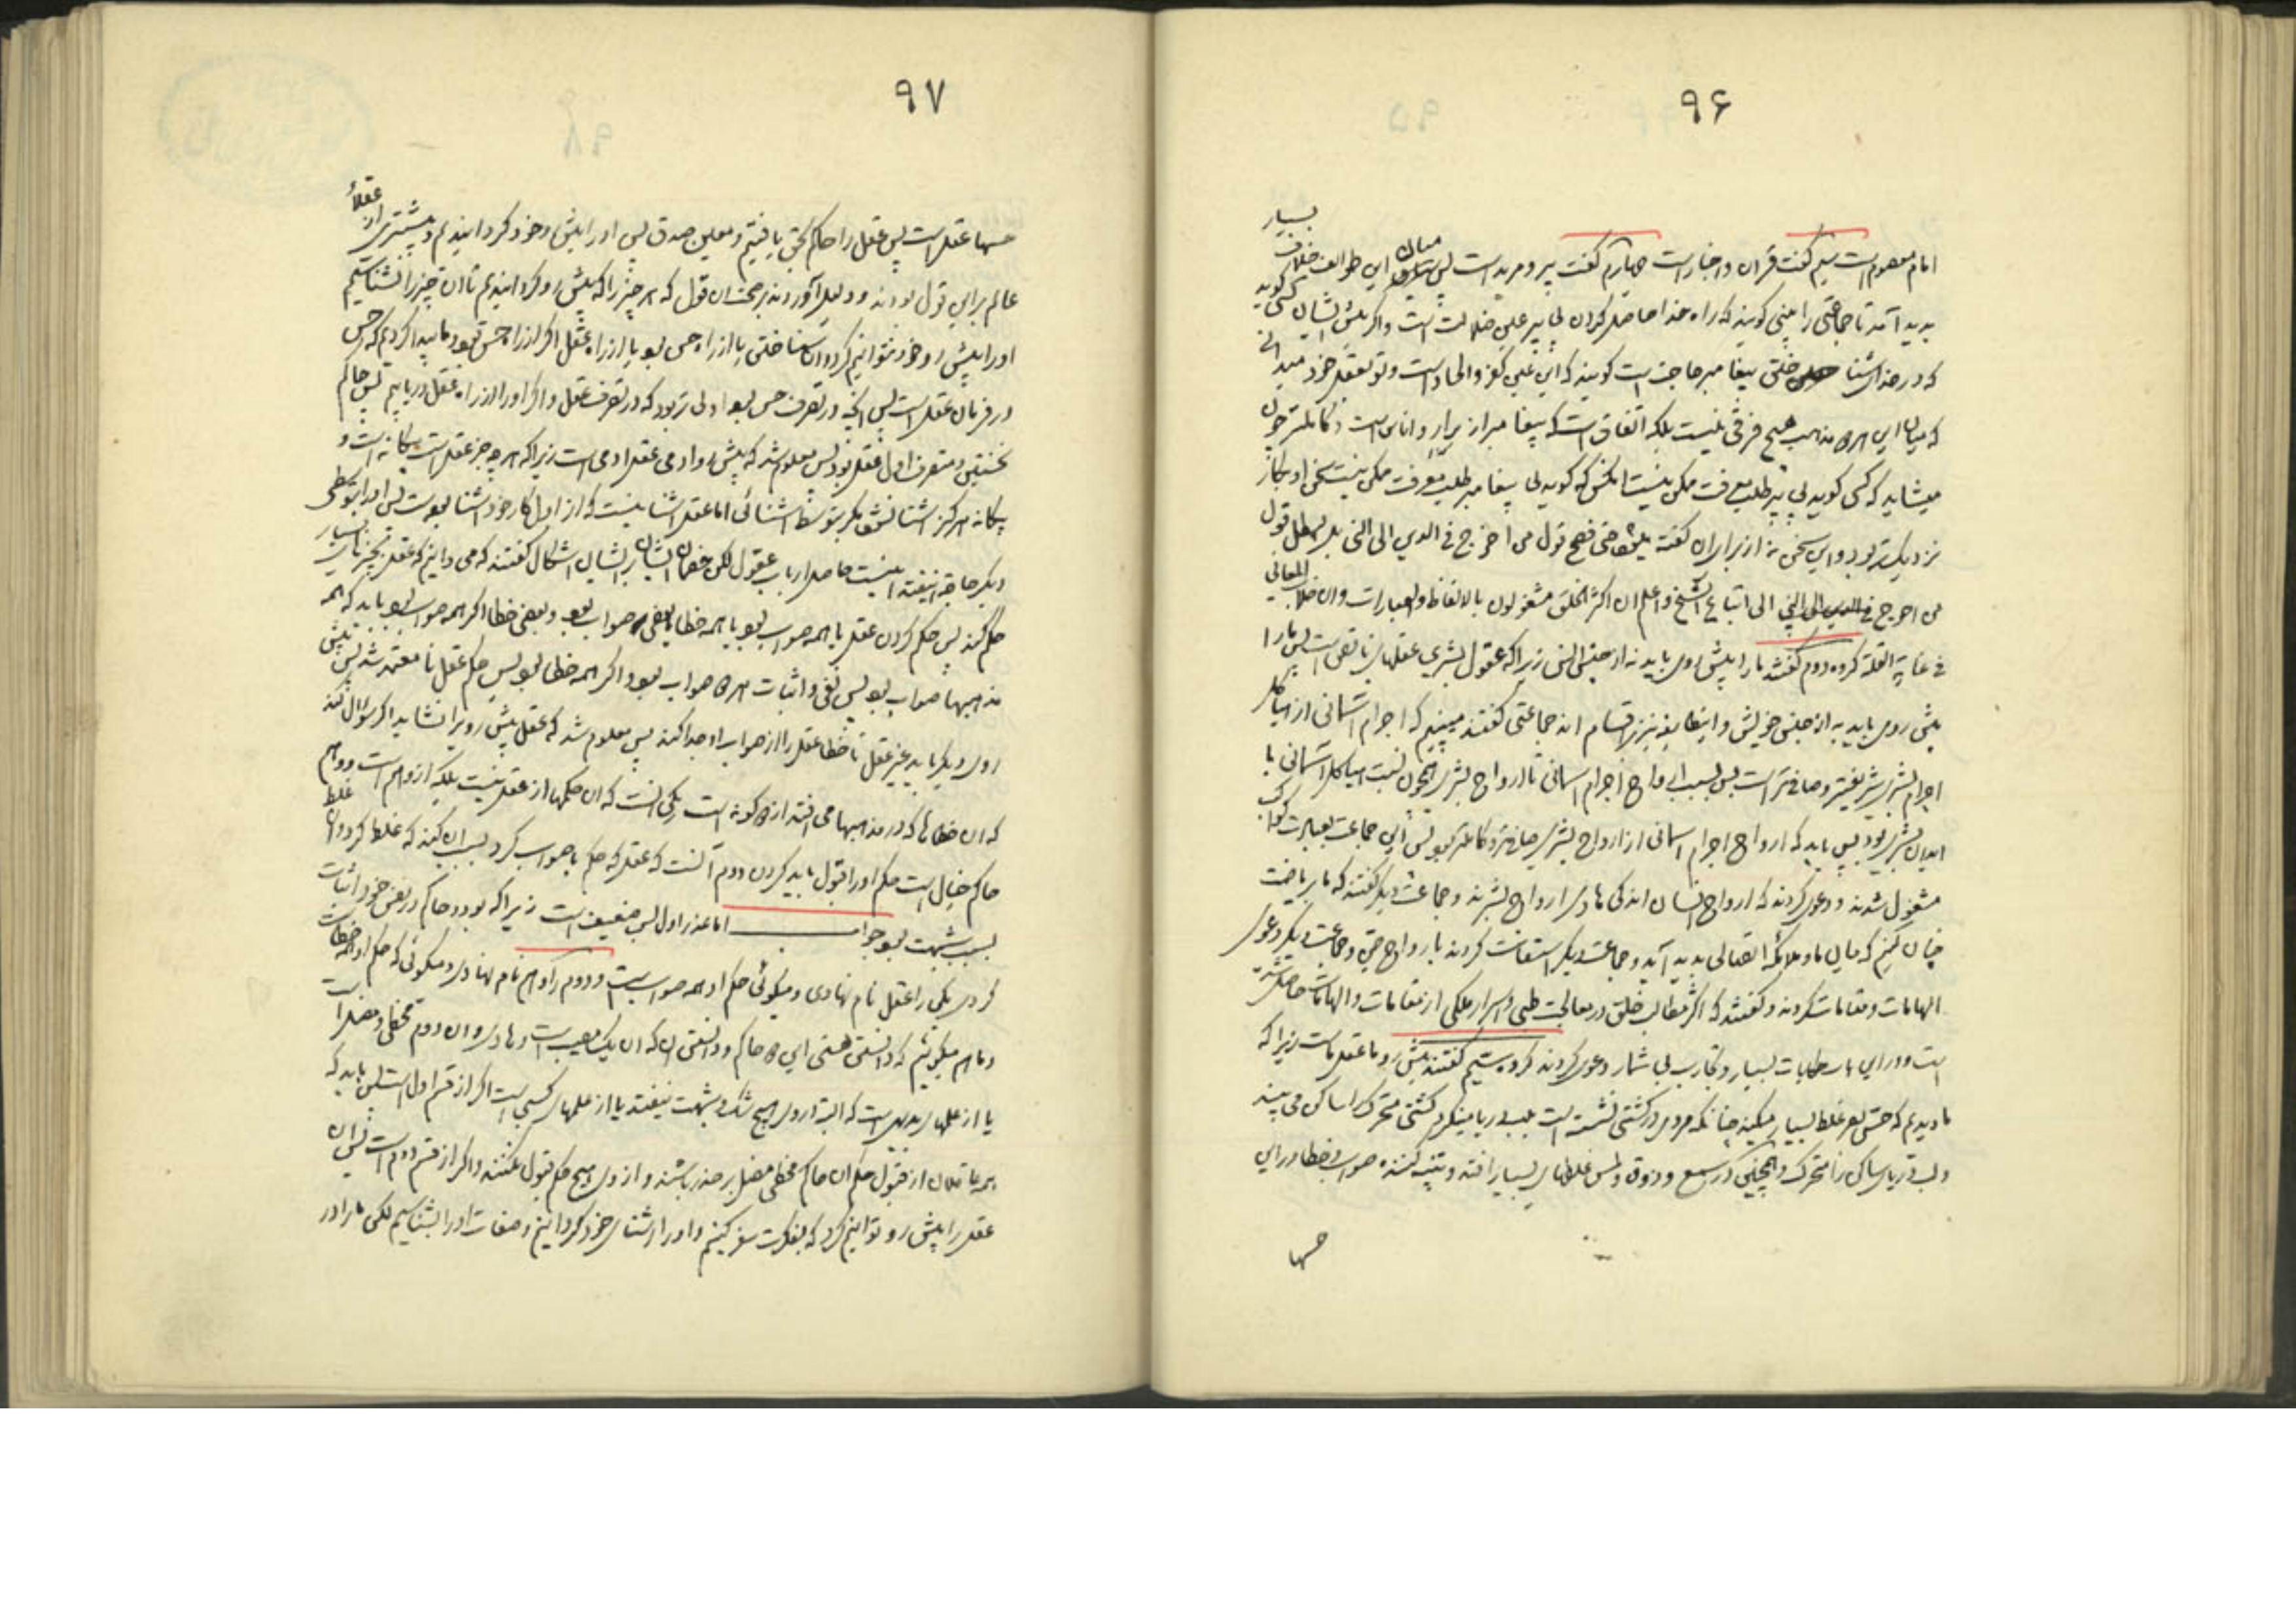 ۹۶
امام معصوم است سیم گفت قران و اخبار است چهارم گفت پیر و مرید است پس میان این طوایف خلاف بسیار
پدید آمد تا جماعتی را بینی گویند که راه خدا حاصل کردن بی پیر عین ضلالت است و اگر پیش ایشان کسی گوید
که در خدا شناختن پیغامبر حاجت است گویند که این عین کفر و الحاد است و تو بعقل خود میدانی
که میان این هر دو مذهب هیچ فرقی نیست بلکه اتفاق است که پیغامبر از پیران و اناس است و کاملتر چون
میشاید که کسی گوید بی پیر طلب معرفت ممکن نیست انکس که گوید بی پیغامبر طلب معرفت ممکن نیست سخن او بکار
نزدیکتر بود و این سخن نه از برای ان گفته میشود حتی فصح قول من اخرج فی الدین الی النبی بل لیبطل قول
من احوج فی الدین الی النبی الی اتباع الشیخ و اعلم ان اکثر الخلق مشغولون بالالفاظ والعبارات وان طلاب المعانی
فی غایة القلة کروه دوم گفتند ما را پیش روی باید نه از جنس النبی زیرا که عقول بشری عقلهای ناقص است پس ما را
پیش روی باید به از جنس خویش و اینطایفه نیز اقسام اند جماعتی گفتند میبینیم که اجرام آسمانی از هیاکل
اجرام بشری شریفتر و صافیتر است پس نسبت ارواح اجرام آسمانی با ارواح بشری همچون نسبت هیاکل آسمانی با
ابدان بشری بود پس باید که ارواح اجرام آسمانی از ارواح بشری صافیتر و کاملتر بود پس این جماعت بعبادت کواکب
مشغول شدند و دعوی کردند که ارواح ایشان اند که هادی ارواح بشرند و جماعت دیگر گفتند که ما ریاضت
چنان کنیم که میان ما و ملائکه اتصالی پدید آید و جماعت دیگر استعانت کردند بارواح جن و جماعت دیگر دعوی
الهامات و مقامات کردند و گفتند که اکثر مطالب خلق در معالجت طبی و اسرار ملکی از مقامات و الهامات حاصل شده
است و در این باب حکایات بسیار و تجارب بی شمار دعوی کردند کروه سیم گفتند پیش رو ما عقل ماست زیرا که
ما دیدیم که حس بصر غلط بسیار میکند چنانکه مردی در کشتی نشسته است بلب دریا مینگرد کشتی متحرک را ساکن می بیند
و لب دریای ساکن را متحرک و همچنین در سمع و ذوق و لمس غلطهای بسیار افتد و تنبیه کننده صواب و خطا در این
حسها
۹۷
حسها عقل است پس عقل را حاکم بحق یافتیم و معین صدق پس او را پیش رو خود کردانیدیم و بیشتری از عقلاء
عالم برین قول بودند و دلیل آوردند بر صحت ان قول که هر چیز را که پیش رو کردانیدیم تا ان چیز را نشناسیم
او را پیش رو خود نتوانیم کرد و ان شناختن یا از راه حس بود یا از راه عقل اگر از راه حس بود ما پیدا کردیم که حس
در فرمان عقل است پس انچه در تصرف حس بود اولی تر بود که در تصرف عقل و اگر او را از راه عقل دریابیم پس حاکم
نخستین و متصرف اول عقل بود پس معلوم شد که پیش رو ادمی عقل ادمی است زیرا که هر چه جز عقل است بیکانه است و
بیکانه هرکز اشنا نشود مگر بتوسط اشنائی اما عقل اشنا نیست که از اول کار خود اشنا بود است پس او را بتوسطی
دیگر حاجت نیفتد اینست حاصل ارباب عقول لکن خصمان ایشان بر ایشان اشکال گفتند که می دانیم که عقل بچیزهای بسیار
حکم کند پس حکم کردن عقل یا همه صواب بود یا همه خطا یا بعضی صواب بود و بعضی خطا اگر همه صواب بود باید که همه
مذهبها صواب بود پس نفی و اثبات هر دو صواب بود و اگر همه خطا بود پس حکم عقل نا معتمد شد پس پیش
روی دیگر باید غیر عقل تا خطا عقل را از صواب او جدا کند پس معلوم شد که عقل پیش رویرا نشاید اگر سؤال کنند
که ان خطاها که در مذهبها می افتد از دو کونه است یکی انست که ان حکمها از عقل نیست بلکه از وهم است و وهم
حاکم خیال است حکم او را قبول نباید کردن دوم آنست که عقل که حکم ناصواب کرد بسبب ان کند که غلط کرد و ان غلط
بسبب شبهت بود جواب اما عذر اول بس ضعیف است زیرا که بود دو حاکم در نفس خود اثبات
کردی یکی را عقل نام نهادی و میگوئی حکم او همه صوابست و دوم را وهم نام نهادی و میگوئی که حکم او همه خطاست
و ما هم میگوئیم که دانستن هستی این دو حاکم و دانستن ان که ان یک مصیب است و هادی و ان دوم مخطی و مضل است
یا از علمهای بدیهی است که البته در وی هیچ شک و شبهت نیفتد یا از علمهای کسبی است اگر از قسم اول است پس باید که
همه عاقلان از قبول حکم ان حاکم مخطی مضل بر حذر باشند و از وی هیچ حکم قبول نکنند و اگر از قسم دوم است پس ان
عقل را پیش رو توانیم کرد که بفکرت سفر کنیم و او را اشنای خود کردانیم و صفات او را بشناسیم لکن ما را در